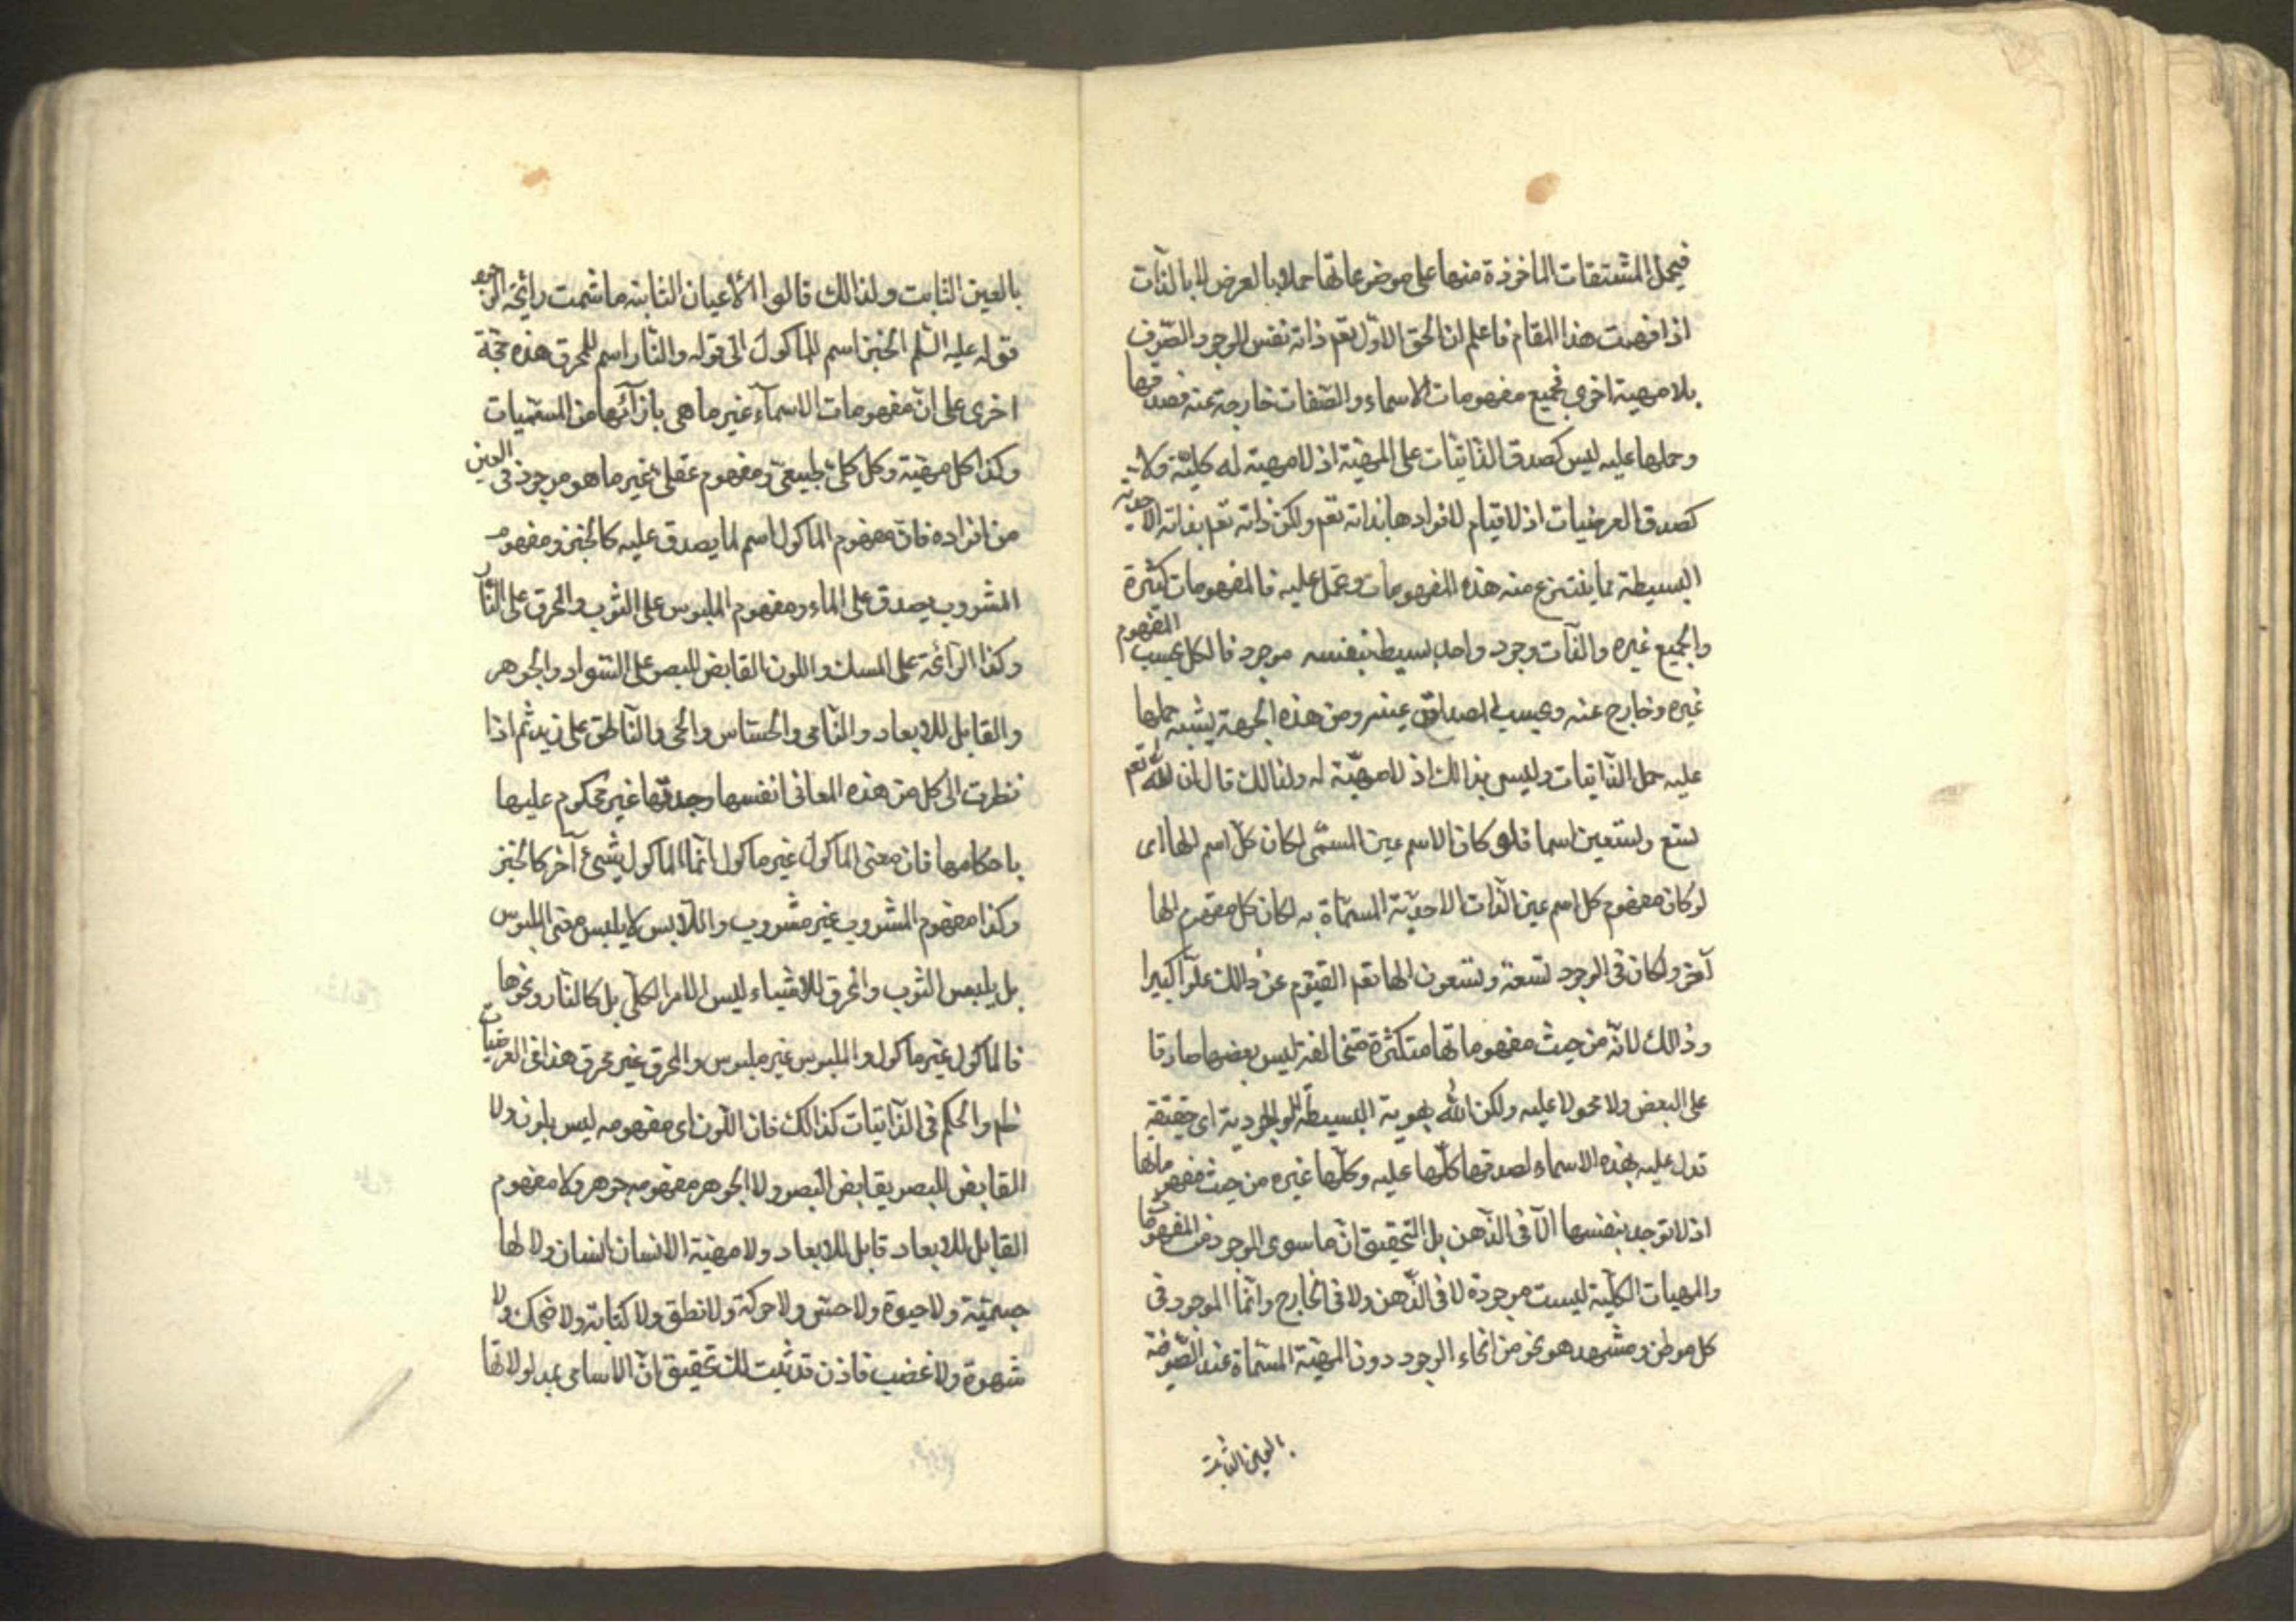 فيحمل المشتقات الماخوذة منها على موضوعاتها حملا بالعرض لا بالذات
اذا فهمت هذا المقام فاعلم ان الحق الاول تعم ذاته نفس الوجود الصرف
بلا مهية اخرى فجميع مفهومات الاسماء والصفات خارجة عنه فصدقها
وحملها عليه ليس كصدق الذاتيات على المهية اذ لا مهية له كلية ولا
كصدق العرضيات اذ لا قيام لافرادها بذاته تعم ولكن ذاته تعم بذاته الاحدية
البسيطة مما ينتزع منه هذه المفهومات وتحمل عليه فالمفهومات كثيرة
والجميع غيره والذات وجود واحد بسيط بنفسه موجود فالكل بحسب المفهوم
غيره وخارج عنه وبحسب المصداق عينه ومن هذه الجهة يشبه حملها
عليه حمل الذاتيات وليس بذالك اذ لا مهية له ولذالك قال ان لله تعم
تسع وتسعين اسما فلو كان الاسم عين المسمى لكان كل اسم الها اى
لو كان مفهوم كل اسم عين الذات الاحدية المسماة به لكان كل مفهوم الها
آخر ولكان فى الوجود تسعة وتسعون الها تعم القيوم عن ذالك علوا كبيرا
وذالك لانه من حيث مفهوماتها متكثرة متخالفة ليس بعضها صادقا
على البعض ولا محمولا عليه ولكن الله بهوية البسيطة الوجودية اى حقيقة
تدل عليه بهذه الاسماء لصدقها كلها عليه وكلها غيره من حيث مفهوماتها
اذ لا توجد بنفسها الا فى الذهن بل التحقيق ان ما سوى الوجود من المفهومات
والمهيات الكلية ليست موجودة لا فى الذهن ولا فى الخارج وانما الموجود فى
كل موطن ومشهد هو نحو من انحاء الوجود دون المهية المسماة عند الصوفية
بالعين الثابت
بالعين الثابت ولذالك قالوا الأعيان الثابتة ما شمت رائحة الوجود
قوله عليه السلم الخبز اسم للمأكول الى قوله والنار اسم للمحرق هذه حجة
اخرى على ان مفهومات الاسمآء غير ما هى بازآئها من المسميات
وكذا كل مهية وكل كلى طبيعى ومفهوم عقلى غير ما هو موجود فى العين
من افراده فان مفهوم الماكول اسم لما يصدق عليه كالخبز ومفهوم
المشروب يصدق على الماء ومفهوم الملبوس على الثوب والمحرق على النار
وكذا الرائحة على المسك واللون القابض للبصر على السواد والجوهر
والقابل للابعاد والنامى والحساس والحى والناطق على زيد ثم اذا
نظرت الى كل من هذه المعانى انفسها وجدتها غير محكوم عليها
باحكامها فان معنى الماكول غير ماكول انما الماكول شىء آخر كالخبز
وكذا مفهوم المشروب غير مشروب واللابس لا يلبس معنى الملبوس
بل يلبس الثوب والمحرق للاشياء ليس الامر الكلى بل كالنار ونحوها
فالماكول غير ماكول والملبوس غير ملبوس والمحرق غير محرق هذا فى العرضيات
والحكم فى الذاتيات كذالك فان اللون اى مفهومه ليس بلون ولا
القابض للبصر بقابض البصر ولا الجوهر مفهومه جوهر ولا مفهوم
القابل للابعاد قابل للابعاد ولا مهية الانسان انسان ولا لها
جسمية ولا حيوة ولا حس ولا حركة ولا نطق ولا كتابة ولا ضحك ولا
شهوة ولا غضب فاذن قد ثبت لك تحقيق ان الاسامى بمدلولاتها